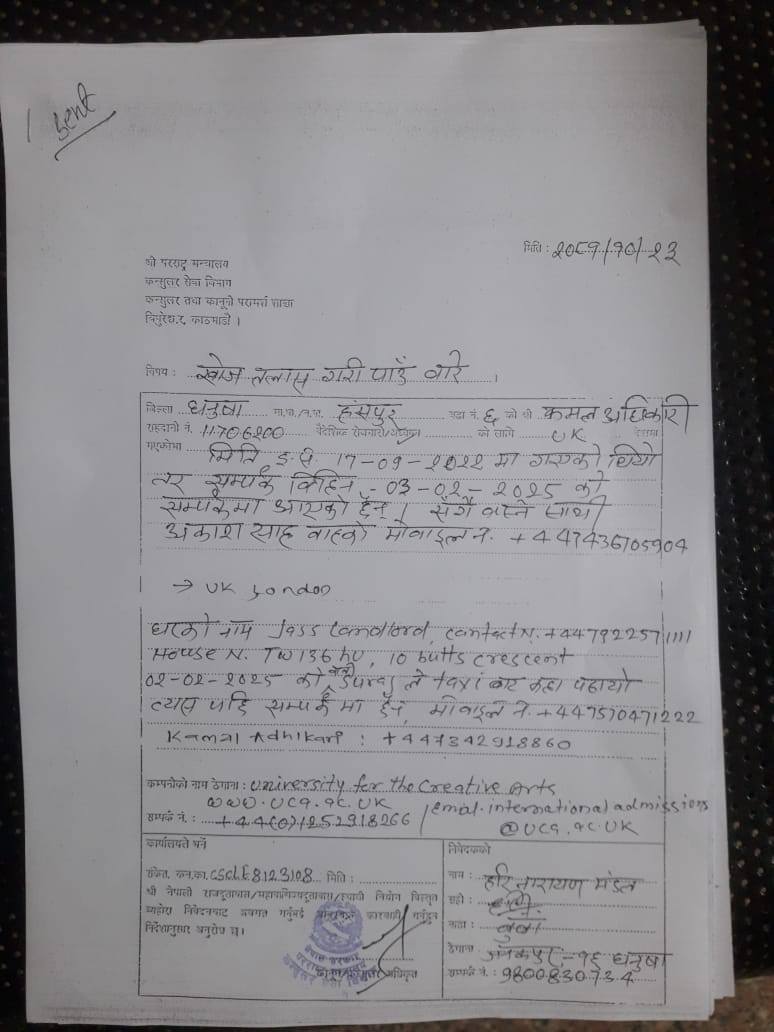 sent
मिति : 2081/10/23
श्री परराष्ट्र मन्त्रालय
कन्सुलर सेवा विभाग
कन्सुलर तथा कानूनी परामर्श शाखा
त्रिपुरेश्वर, काठमाडौं ।
विषय : खोज तलास गरी पाउँ बारे ।
जिल्ला धनुषा गा.पा./न.पा. हंसपुर वडा नं. ६ को श्री कमल अधिकारी
राहदानी नं. 11706200 वैदेशिक रोजगारी/अध्ययन को लागि UK देशमा
गएकोमा मिति ई.सं 17-09-2022 मा गएको थियो
तर सम्पर्क विहिन -03-02-2025 को
सम्पर्कमा आएको छैन् । सँगै बस्ने साथी
अकाश साह वाहको मोबाइल नं. +447436705904
→ UK London
घरको नाम Jass Landlord, contact N. +447922571111
House N. TW136HU, 10 butts crescent
02-02-2025 को बेलुका Suraj ले taxi बाट कहा पठायो
त्यस पछि सम्पर्क मा छैन, मोबाइल नं. +447570471222
Kamal Adhikari : +447342918860
कम्पनीको नाम ठेगाना : University for the Creative Arts
www.uca.ac.uk / email. international admissions
सम्पर्क नं. : +44(0)1252918266 @uca.ac.uk
कार्यालयले भर्ने
संकेत. कन.का. मिति :
श्री नेपाली राजदूतावास/महावाणिज्यदूतावास/स्थायी नियोग विस्तृत
व्यहोरा निवेदनबाट अवगत गर्नुभई आवश्यक कारवाही गर्नुहुन
निर्देशानुसार अनुरोध छ।
निवेदकको
नाम : हरि नारायण मंडल
सही :
नाता : बुवा
ठेगाना : जनकपुर-१६ धनुषा
सम्पर्क नं. : 9800830734